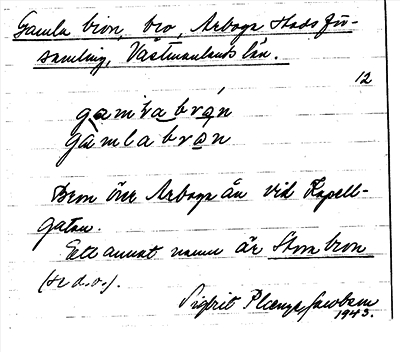 Gamla bron, bro, Arboga stadsför-
samling, Västmanlands län.
12
gamla brón
gàmla bron
Bron över Arboga ån vid Kapell-
gatan.
Ett annat namn är Stora bron
(se d.o.).
Sigbrit Plænge Jacobson
1943.